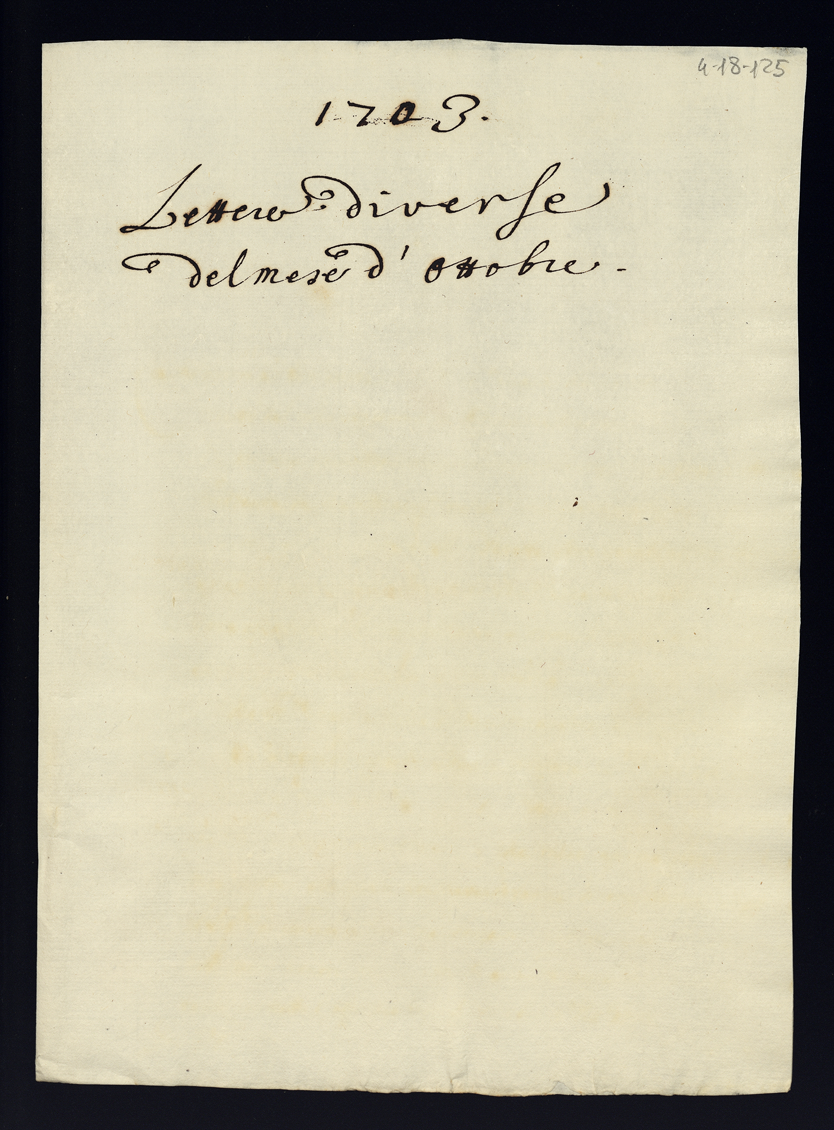 4-18-125
1703.
Lettere diverse
del mese d' Ottobre.